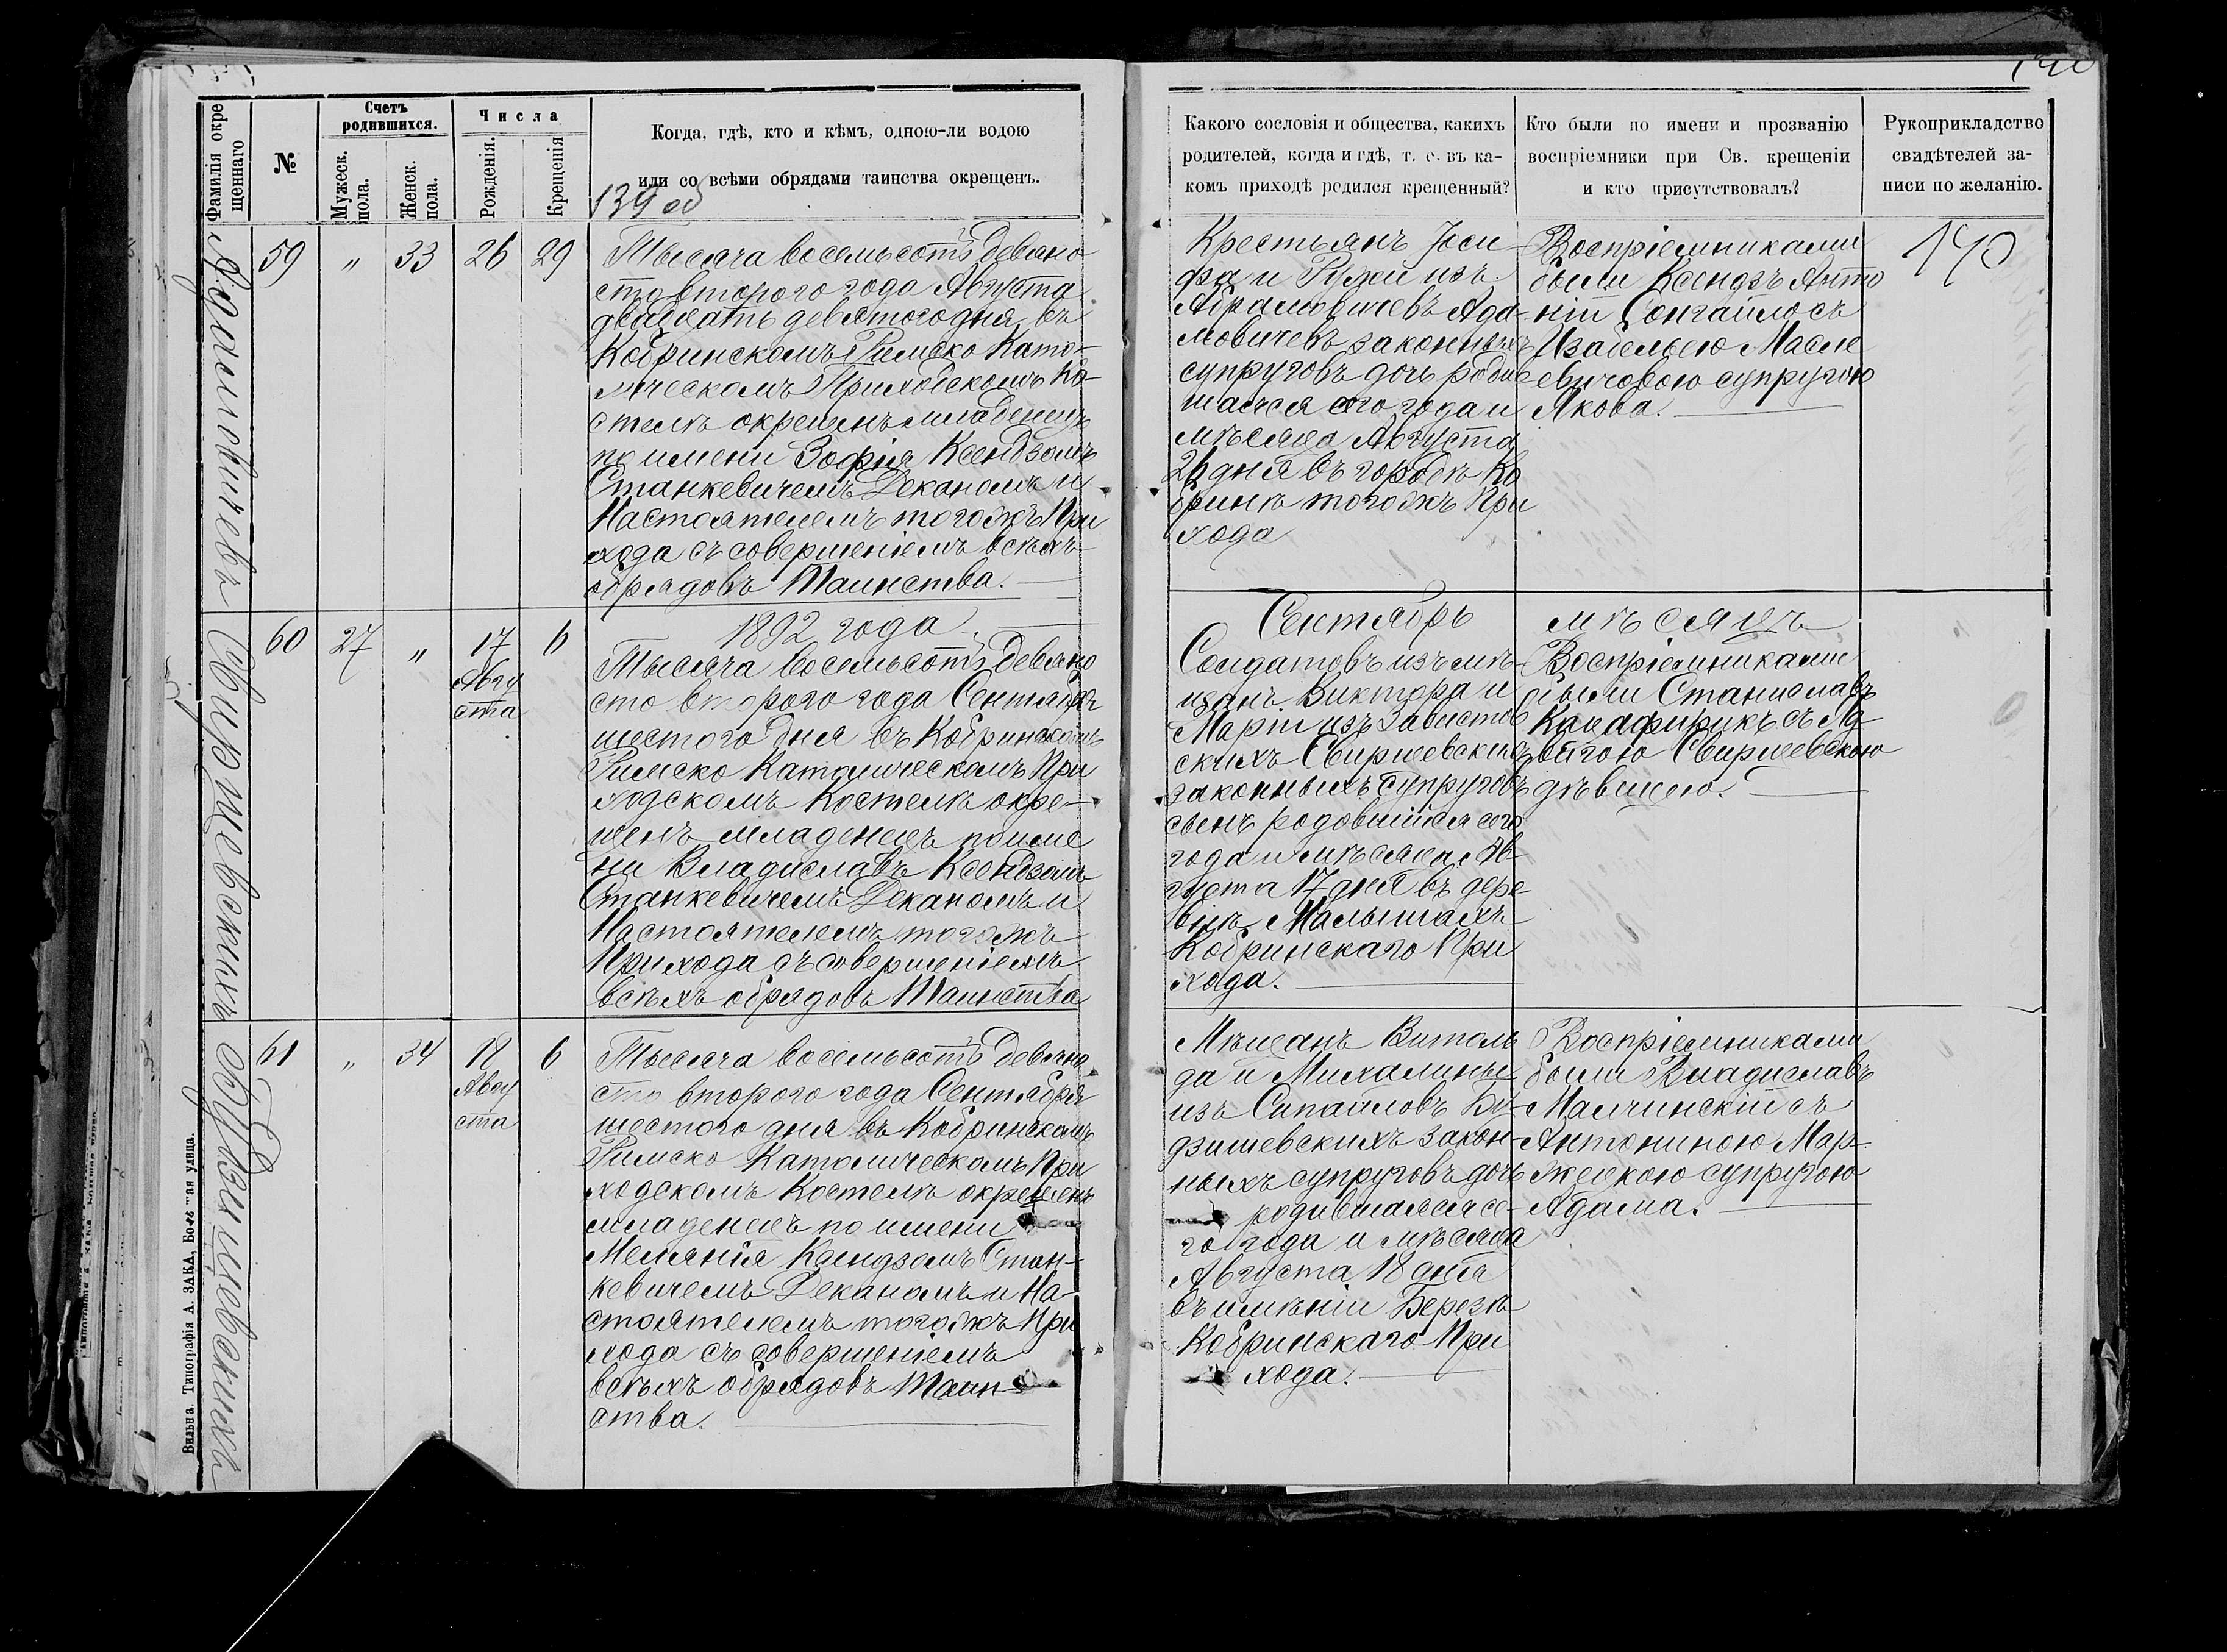 Фамилія окре
щеннаго
№
Счетъ
родившихся.
Мужеск.
пола.
Женск.
пола.
Числа
Рожденія.
Крещенія
Когда, гдѣ, кто и кѣмъ, одною-ли водою
или со всѣми обрядами таинства окрещенъ.
139 об
59
"
33
26
29
Тысяча восемьсотъ девяно
сто второго года Августа
двадцать девятого дня въ
Кобринскомъ Римско Като-
лическомъ Приходскомъ Ко-
стелѣ окрещенъ младенецъ
по имени Зофія Ксендзомъ
Станкевичемъ Деканомъ и
Настоятелемъ того жъ При
хода съ совершеніемъ всѣхъ
обрядовъ Таинства.
60
27
"
17
Авгу
ста
6
1892 года.
Тысяча восемьсотъ девяно
сто второго года Сентября
шестого дня въ Кобринскомъ
Римско Католическомъ При
ходскомъ Костелѣ окре-
щенъ младенецъ по име
ни Владиславъ Ксендзомъ
Станкевичемъ Деканомъ и
Настоятелемъ того жъ
Прихода съ совершеніемъ
всѣхъ обрядовъ Таинства
Свиршевскихъ
61
"
34
18
Авгу
ста
6
Тысяча восемьсотъ девяно
сто второго года Сентября
шестого дня въ Кобринскомъ
Римско Католическомъ При
ходскомъ Костелѣ окрещенъ
младенецъ по имени
Меланія Ксендзомъ Стан-
кевичемъ Деканомъ и На-
стоятелемъ того жъ При
хода съ совершеніемъ
всѣхъ обрядовъ Таин-
ства.
Вильна. Типографія А. ЗАКА, Большая улица.
Какого сословія и общества, какихъ
родителей, когда и гдѣ, т. е. въ ка-
комъ приходѣ родился крещенный?
Кто были по имени и прозванію
воспріемники при Св. крещеніи
и кто присутствовалъ?
Рукоприкладство
свидѣтелей за-
писи по желанію.
140
Крестьянъ Іоси
фа и изъ
Абрамовичевъ Ада-
мовичевъ законныхъ
супруговъ дочь родив
шаяся сего года и
мѣсяца Августа
26 дня въ городѣ Ко
бринѣ того жъ При
хода
Воспріемниками
были Ксендзъ Анто
ній Сонгайло съ
Изабелью Масле
евичовою супругою
Якова.
Сентябрь мѣсяцъ
Солдатовъ изъ мѣ-
щанъ Виктора и
Маріи изъ Завистов
скихъ Свиршевскихъ
законныхъ супруговъ
сынъ родовшійся сего
года и мѣсяца Ав-
густа 17 дня въ дере
внѣ Малышахъ
Кобринскаго При
хода.
Воспріемниками
были Станиславъ
съ Яд-
вигою Свиршевскою
дѣвицею.
Мѣщанъ Витоль
да и Михалины
изъ Сипайловъ Бу-
дзишевскихъ закон-
ныхъ супруговъ дочь
родившаяся се-
го года и мѣсяца
Августа 18 дня
въ имѣніи Березѣ
Кобринскаго При
хода.
Воспріемниками
были Владиславъ
Малчинскій съ
Антониною Мар-
жецкою супругою
Адама.